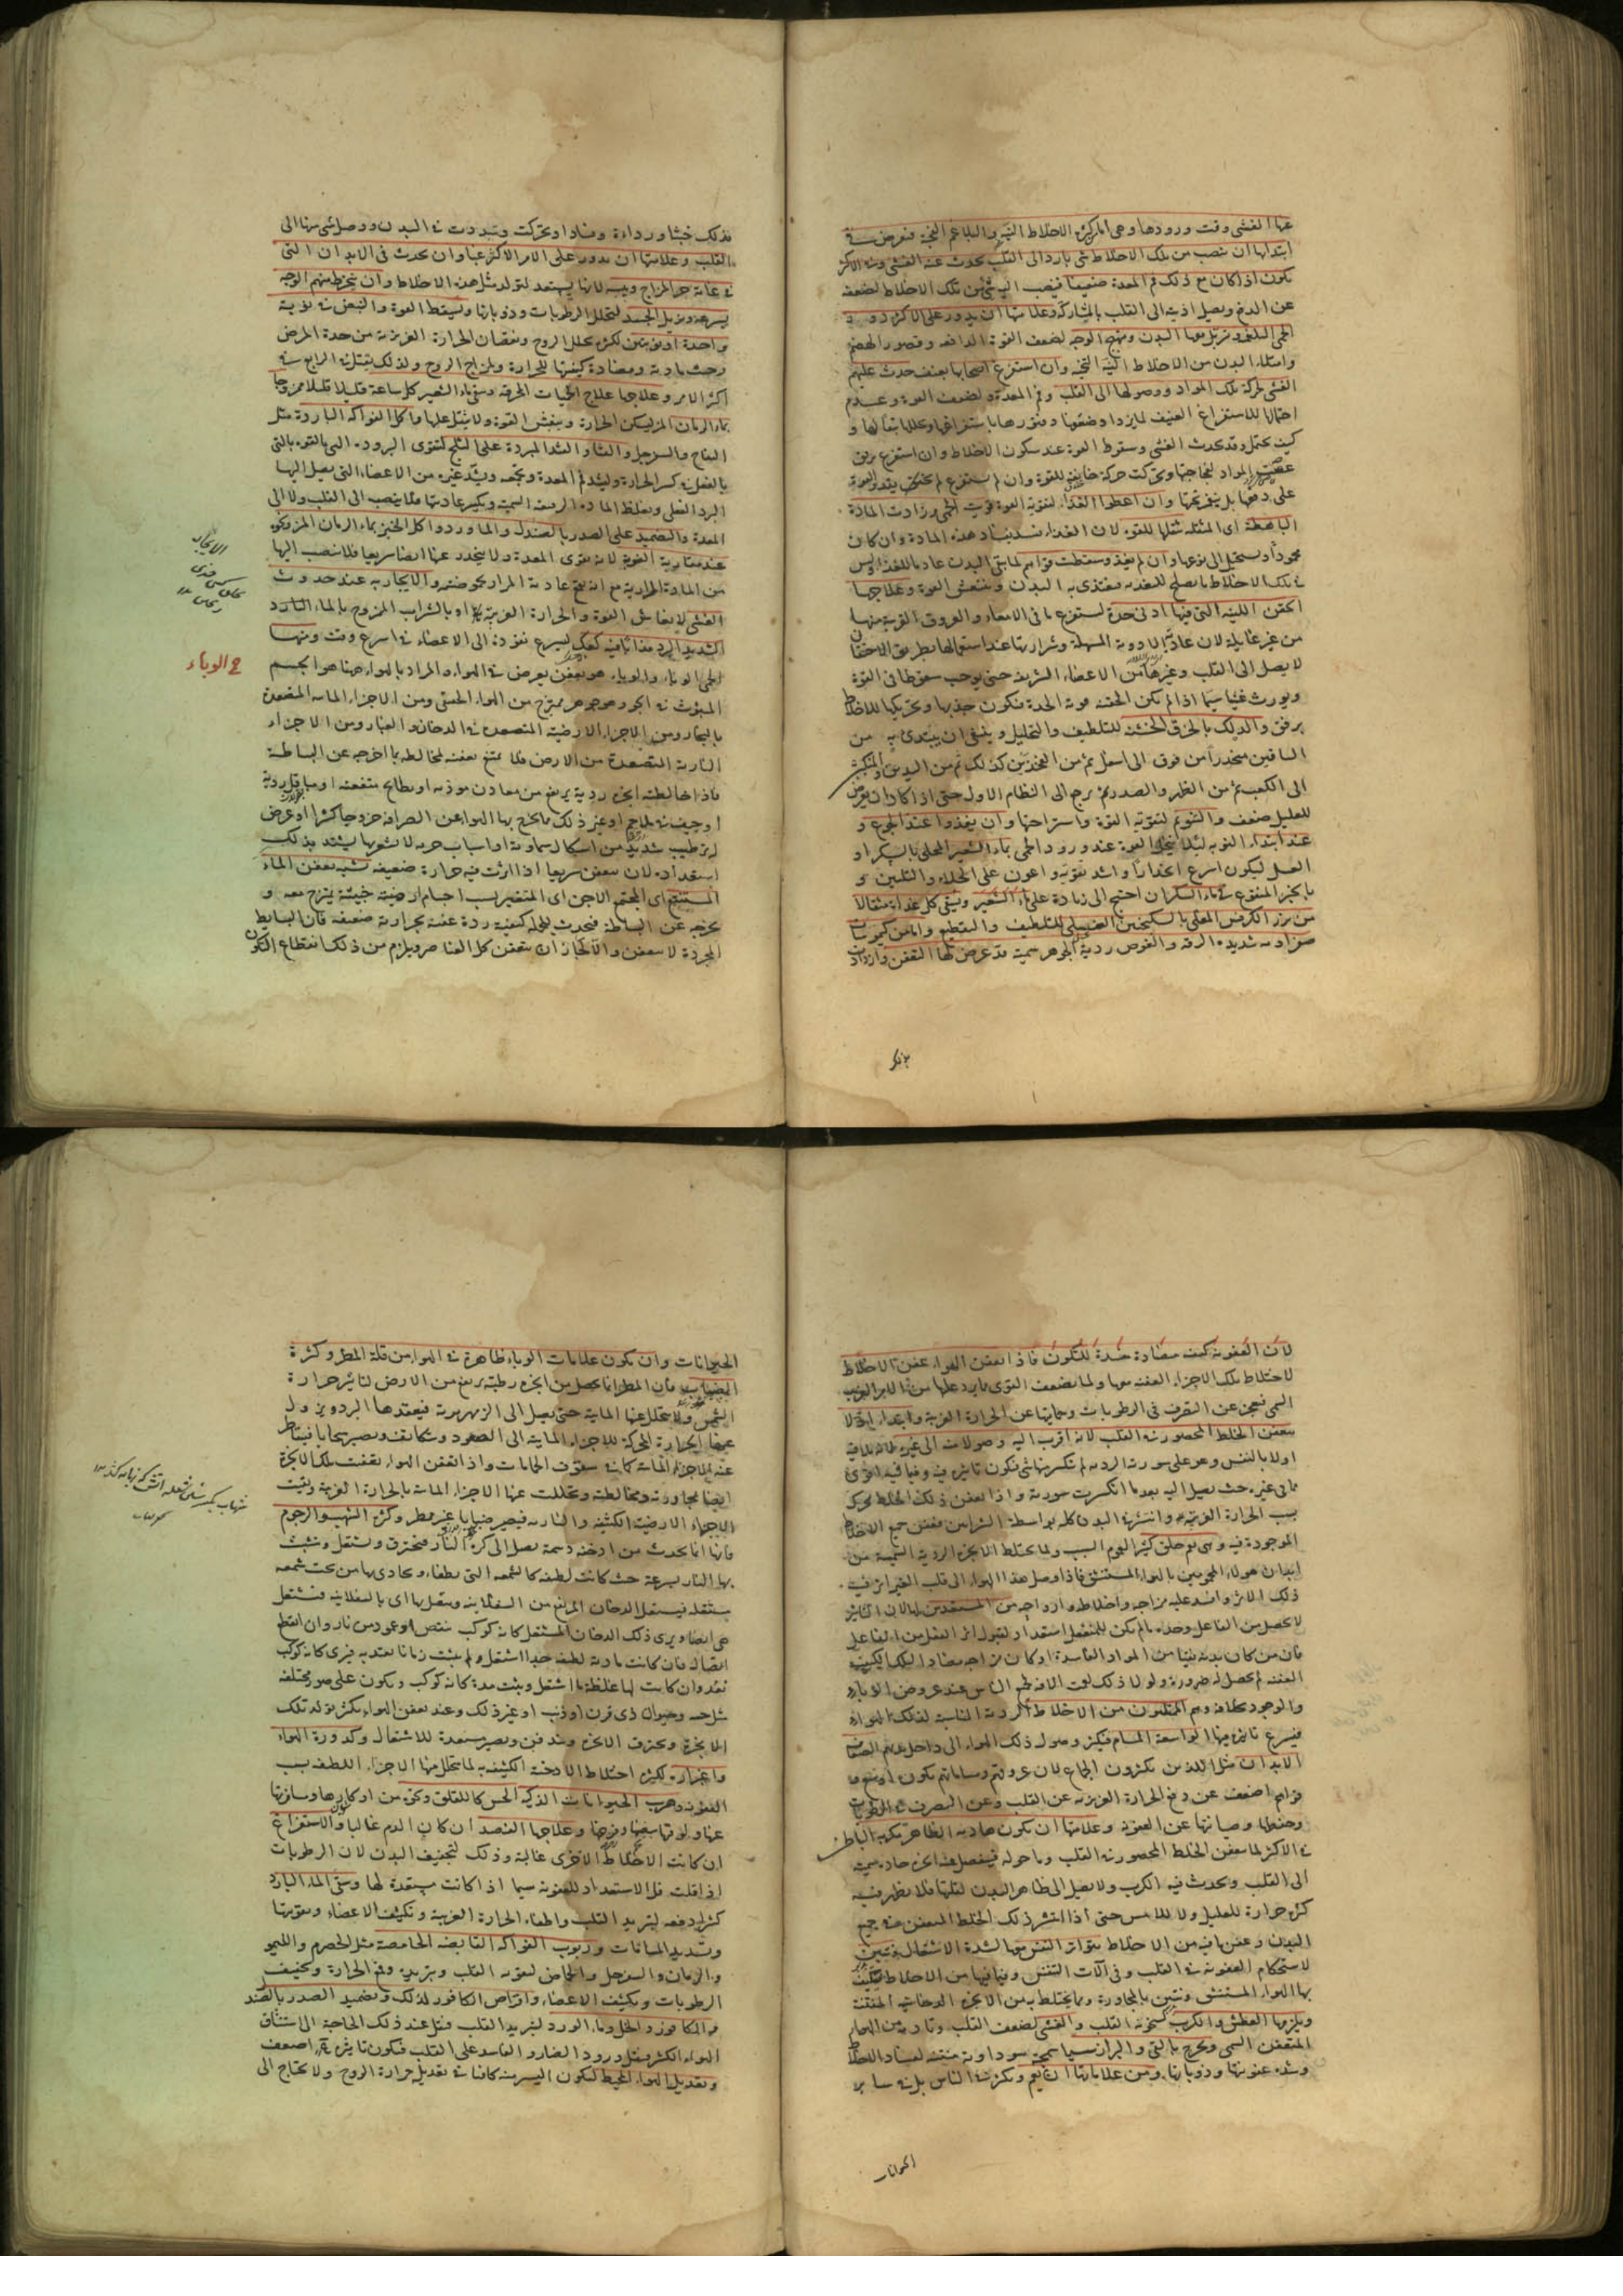 عنها الغشى وقت ورودها وهى اما لكثرة الاخلاط النيّة والبلاغم الفجّة فتعرض فى
ابتدائها ان تنصب من تلك الاخلاط شئ بارد الى القلب يحدث عنه الغشى وفى الاكثر
يكون اذا كان مع ذلك فم المعدة ضعيفا فينصب اليه شئ من تلك الاخلاط لضعفه
عن الدفع ويصل اذيته الى القلب بالمشاركة وعلامتها ان يدور على الاكثر دور
الحمى البلغمى وترهل معها البدن وتهيج الوجه لضعف القوة الدافعة وقصور الهضم
وامتلاء البدن من الاخلاط النيّة الفجّة وان استفرغ اصحابها بعنف حدث عليهم
الغشى لحركة تلك المواد ووصولها الى القلب وفم المعدة ولضعف القوة وعدم
احتمالها للاستفراغ العنيف
كيف يحتمل وقد يحدث الغشى وسقوط القوة عند سكون الاخلاط وان استفرغ برفق
عصت المواد لفجاجتها وتحركت حركة خانقة للقوة وان لم يستفرغ لم يقو القوة
على دفعها بل ينفر عنها وان اعطوا الغذاء لتقوية القوة قويت الحمى وزادت المادة
الباهظة اى المثقلة ثقلها للقوة لان الغذاء يفسد بفساد هذه المادة وان كان
محمودا ويستحيل الى نوعها وان لم يغذ وسقطت قواهم لما بقى البدن عادما للغذاء وليس
فى تلك الاخلاط ما يصلح للتغذية فيغتذى به البدن وتنتعش القوة وعلاجها
الحقن اللينة التى فيها ادنى حدة لتستفرغ ما فى الامعاء والعروق القريبة منها
من غير غايلة لان عادية الادوية المسهلة وشرارتها عند استعمالها بطريق الاحتقان
لا يصل الى القلب وغيرها من الاعضاء الشريفة حتى يوجب سقوطا فى القوة
ويورث غشيا سيما اذا لم تكن الحقنة قوية الحدة فتكون جذبها وتحريكها للاخلاط
برفق والدلك بالخرق الخشنة للتلطيف والتحليل وينبغى ان يبتدئ به من
الساقين منحدرا من فوق الى اسفل ثم من الفخذين كذلك ثم من اليدين والمنكبين
الى الكعب ثم من الظهر والصدر ثم يرجع الى النظام الاول حتى اذا كاد ان يعرض
للعليل ضعف والتنويم لتقوية القوة واستراحتها وان يغذوا عند الجوع و
عند ابتداء النوبة لئلا تنحل القوة عند ورود الحمى بماء الشعير المحلى بالسكر او
العسل ليكون اسرع انحدارا واشد تقوية واعون على الجلاء والتليين و
بالخبز المنقوع فى ماء السكر ان احتيج الى زيادة على ماء الشعير ويسقى كل غداة مثقالا
من بزر الكرفس المغلى بالسكنجبين العسلى للتلطيف والتقطيع واما من كيموسات
صفراوية شديدة الرقة والغوص ردية الجوهر سمية قد عرض لها التعفن وازدادت
بذلك
بذلك خبثا ورداءة وفسادا وتحركت وتبددت فى البدن ووصل شئ منها الى
القلب وعلامتها ان يدور على الامر الاكثر غبا وان يحدث فى الابدان التى
فى غاية حر المزاج ويبسه لانها يستعد لتولد مثل هذه الاخلاط وان ينخرط منهم الوجه
بسرعة ويزبل الجسد لتحلل الرطوبات وذوبانها وتسقط القوة والنبض فى نوبة
واحدة او نوبتين لكثرة تحلل الروح ونقصان الحرارة الغريزية من حدة المرض
وخبث مادته ومضادة كيفيتها للحرارة ولمزاج الروح ولذلك يقتل فى الرابع فى
اكثر الامر وعلاجها علاج الحميات المحرقة وسقى ماء الشعير كل ساعة قليلا قليلا ممزوجا
بماء الرمان المز ليسكن الحرارة وينعش القوة ولا يثقل عليها واكل الفواكه الباردة مثل
التفاح والسفرجل والقثاء والقثد المبردة على الثلج لتقوى البرودة التى بالقوة بالتى
بالفعل فى كسر الحرارة وليشد فم المعدة
البرد الفعلى ويغلظ المادة الرقيقة السمية ويكسر عاديتها فلا ينصب الى القلب ولا الى
المعدة والتضميد على الصدر بالصندل والماورد واكل الخبز بماء الرمان المز وغيره
عند مقاربة النوبة لانه يقوى المعدة ولا ينحدر عنها ايضا سريعا فلا ينصب اليها
من المادة المرارية مع انه يقمع عادية المرار بحموضته والايجار به عند حدوث
الغشى لانعاش القوة والحرارة الغريزية او بالشراب الممزوج بالماء البارد
الشديد البرد مذابا فيه كعك ليسرع نفوذه الى الاعضاء فى اسرع وقت ومنها
الحمى الوبائية والوباء هو تعفن يعرض فى الهواء والمراد بالهواء هنا هو الجسم
المبثوث فى الجو وهو جوهر ممتزج من الهواء الحقيقى ومن الاجزاء المائية المتصعدة
بالبخار ومن الاجزاء الارضية المتصعدة فى الدخان والغبار ومن الاجزاء
النارية المتصعدة من الارض فلا يمتنع تعفنه لمخالطة ما اخرجه عن البساطة
فاذا خالطته ابخرة ردية يرتفع من معادن موذية او بطائح متعفنة او مباقل ردية
او جيف فى ملاحم او غير ذلك مما يخرج بها الهواء عن الصرافة خروجا كثيرا او عرض
له ترطيب شديد من اشكال سماوية او اسباب جوية لا نشعر بها يشتد بذلك
استعداده لان يتعفن سريعا اذا اثرت فيه حرارة ضعيفة تشبه تعفن الماء
المستنقع اى المجتمع الآجن اى المتغير لسبب اجسام ارضية خبيثة يمتزج معه و
يخرجه عن البساطة فتحدث للجملة كيفية ردية عفنة بحرارة ضعيفة فان البسايط
المجردة لا يتعفن والا لجاز ان يتعفن كل العناصر ويلزم من ذلك انقطاع التكون
الايجار
ج الوباء
لان العفونة كيفية مضادة مفسدة للتكون فاذا تعفن الهواء عفن الاخلاط
لاختلاط تلك الاجزاء العفنة معها ولما يضعف القوى مما يرد عليها من الامر الغريب
السمى فيعجز عن التصرف فى الرطوبات وحمايتها عن الحرارة الغريبة وابتداء اولا
بتعفين الخلط المحصور فى القلب لانه اقرب اليه وصولا منه الى غيره
اولا بالتنفس وهو على سورته الردية لم تنكسر منها شئ فتكون تاثيره فيه وفيما فيه اقوى
مما فى غيره حيث يصل اليه بعد ما انكسرت سورته واذا تعفن ذلك الخلط تحرك
بسبب الحرارة الغريبة وانتشر فى البدن كله بواسطة الشرايين فعفن جميع الاخلاط
الموجودة فيه وحمى يعم خلق كثير لعموم السبب ولما يختلط الابخرة الردية السمية من
ابدان هؤلاء المحمومين بالهواء المستنشق فاذا وصل هذا الهواء الى قلب الغير اثر فيه
ذلك الاثر وافسد عليه مزاجه واخلاطه وارواحه من المستعدين لها لان التاثير
لا يحصل من الفاعل وحده ما لم يكن للمنفعل استعداد لقبول اثر الفعل من الفاعل
فان من كان بدنه نقيا من المواد الفاسدة او كان مزاجه مضادا لتلك الكيفية
العفنة لم يحصل له ضرورة ولولا ذلك لعمت الافة جميع الناس عند عروض الوباء
والوجود بخلافه وهم الممتلئون من الاخلاط الردية المناسبة لذلك الهواء
فيسرع تاثيره فيها الواسعة المسام فيكثر وصول ذلك الهواء الى داخل بدنهم الضعاف
الابدان مثل الذين يكثرون الجماع لان عروقهم ومساماتهم يكون اوسع و
قواهم اضعف عن دفع الحرارة الغريبة عن القلب وعن التصرف فى الرطوبات
وحفظها وصيانتها عن العفونة وعلامتها ان يكون هادية الظاهر مكربة الباطن
فى الاكثر لما يتعفن الخلط المحصور فى القلب وما حوله فينفصل منه ابخرة حادة سمية
الى القلب ويحدث فيه الكرب ولا يصل الى ظاهر البدن لقلتها فلا يظهر فيه
كثرة حرارة للعليل ولا للامس حتى اذا انتشر ذلك الخلط المتعفن فى جميع
البدن وعفن ما فيه من الاخلاط يتواتر التنفس معها لشدة الاشتعال وينتن
لاستحكام العفونة فى القلب وفى آلات التنفس وفيما فيها من الاخلاط فيتكيف
بها الهواء المستنشق وينتن بالمجاورة وبما يختلط به من الابخرة الدخانية المنتنة
ويلزمها العطش والكرب لسخونة القلب والغشى لضعف القلب وتاذيه من الهواء
المتعفن السمى ويخرج بالقئ والبراز اشياء سمجة سوداوية منتنة لفساد الاخلاط
وشدة عفونتها وذوبانها ومن علاماتها ان تعم وتكثر فى الناس بل فى ساير
الحيوانات
الحيوانات وان يكون علامات الوباء ظاهرة فى الهواء من قلة المطر وكثرة
الضباب فان المطر انما يحصل من ابخرة رطبة يرتفع من الارض لتاثير حرارة
الشمس ولا يتحلل عنها المائية حتى يصل الى الزمهريرية فيعقدها البرد ويزول
عنها الحرارة المحركة للاجزاء المائية الى الصعود وتتكاثف وتصير سحابا فيتقاطر
عنه الاجزاء المائية كما فى سقوف الحمامات واذا تعفن الهواء تعفنت تلك الابخرة
ايضا لمجاورته ومخالطته وتحللت عنها الاجزاء المائية بالحرارة الغريبة وبقيت
الاجزاء الارضية الكثيفة والنارية فيصير ضبابا غير ممطر وكثرة الشهب والرجوم
فانها انما يحدث من ادخنة دسمة يصل الى كرة النار فيحترق وتشتعل ويتشبث
بها النار بسرعة حيث كانت لطيفة كالشمعة التى يطفاء ويحاذى بها من تحت شمعة
مشتعلة فيشتعل الدخان المرتفع من السفلانية ويتصل بها اى بالسفلانية فتشتعل
هى ايضا ويرى ذلك الدخان المشتعل كانه كوكب منقض او عمود من نار وان انقطع
اتصاله فان كانت مادته لطيفة جدا اشتعل ولم يثبت زمانا يعتد به فيرى كانه كوكب
نفذ وان كانت لها غلظة ما اشتعل وثبتت مدة كانه كوكب ويكون على صور مختلفة
مثل حية وحيوان ذى قرن او ذنب او غير ذلك وعند تعفن الهواء يكثر تولد تلك
الابخرة ويحترق الابخرة وتدخن وتصير مستعدة للاشتعال وكدورة الهواء
واغبراره لكثرة اختلاط الادخنة الكثيفة به لما يتحلل منها الاجزاء اللطيفة بسبب
العفونة وهرب الحيوانات الذكية الحس كاللقلق ونحوه من اوكارها ومسافرتها
عنها ولو تركها بيضها وفرخها وعلاجها الفصد ان كان الدم غالبا والاستفراغ
ان كانت الاخلاط الاخرى غالبة وذلك لتجفيف البدن لان الرطوبات
اذا قلت قل الاستعداد للعفونة سيما اذا كانت مستعدة لها وسقى الماء البارد
كثيرا دفعة لتبريد القلب واطفاء الحرارة الغريبة وتكثيف الاعضاء وتقويتها
وتسديد المسامات وربوب الفواكه القابضة الحامضة مثل الحصرم والليمو
والرمان والسفرجل والحماض لتقوية القلب وتبريده وقمع الحرارة وتجفيف
الرطوبات وتكثيف الاعضاء واقراص الكافور لذلك وتضميد الصدر بالصندل
والكافور والخل وماء الورد لتبريد القلب فيقل عند ذلك الحاجة الى استنشاق
الهواء الكثير فيقل ورود الضار والفاسد على القلب فيكون تاثيره فيه اضعف
وتعديل الهواء المحيط ليكون اليسير منه كافيا فى تعديل حرارة الروح ولا يحتاج الى